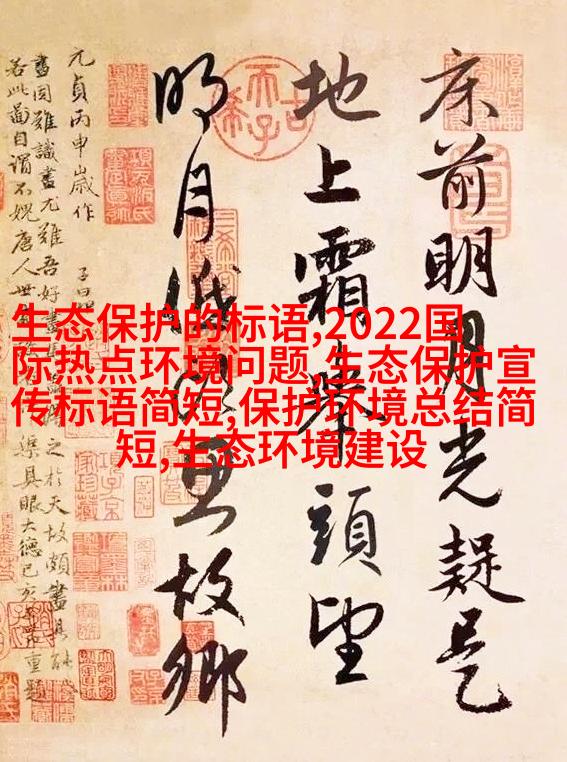 床前明月光疑是
地上霜舉頭望
明月低頭思故鄉
元貞丙申歲作
畫固難識畫尤難吾好畫
之於天故頗盡
若此圖自謂不愧唐人世
渠具眼大德己亥
重題
生态保护的标语,2022国
际热点环境问题,生态保护宣
传标语简短,保护环境总结简
短,生态环境建设